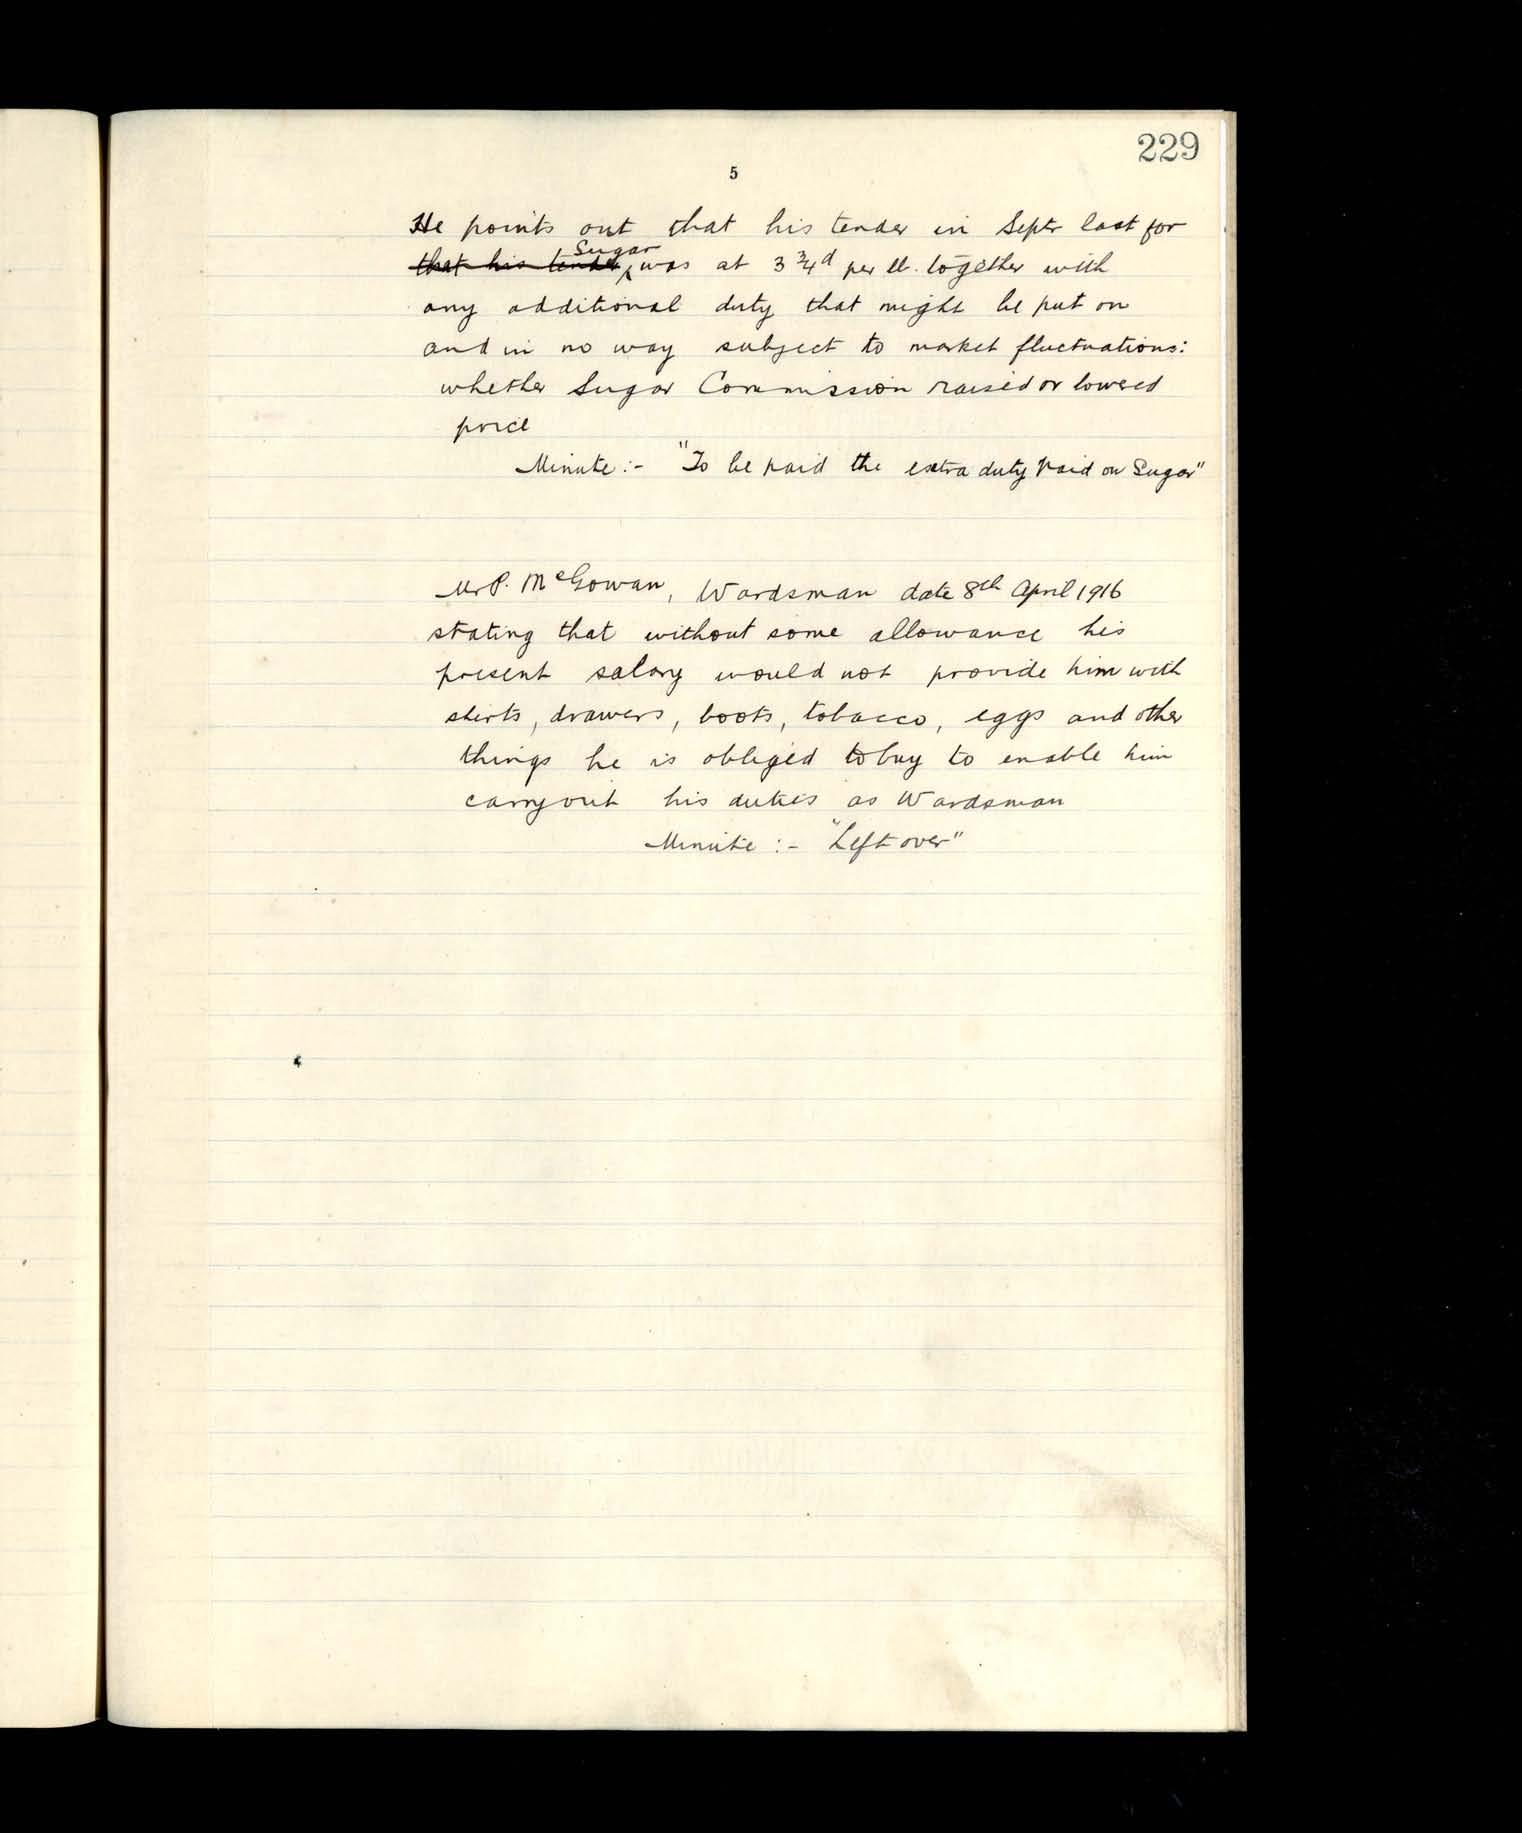 229
5
He points out that his tender in Septr last for
that his tender Sugar was at 3 3/4d per lb. together with
any additional duty that might be put on
and in no way subject to market fluctuations:
whether Sugar Commission raised or lowered
price
Minute :- "To be paid the extra duty paid on Sugar"
Mr P. McGowan, Wardsman date 8th April 1916
stating that without some allowance his
present salary would not provide him with
shirts, drawers, boots, tobacco, eggs and other
things he is obliged to buy to enable him
carry out his duties as Wardsman
Minute :- "Left over"